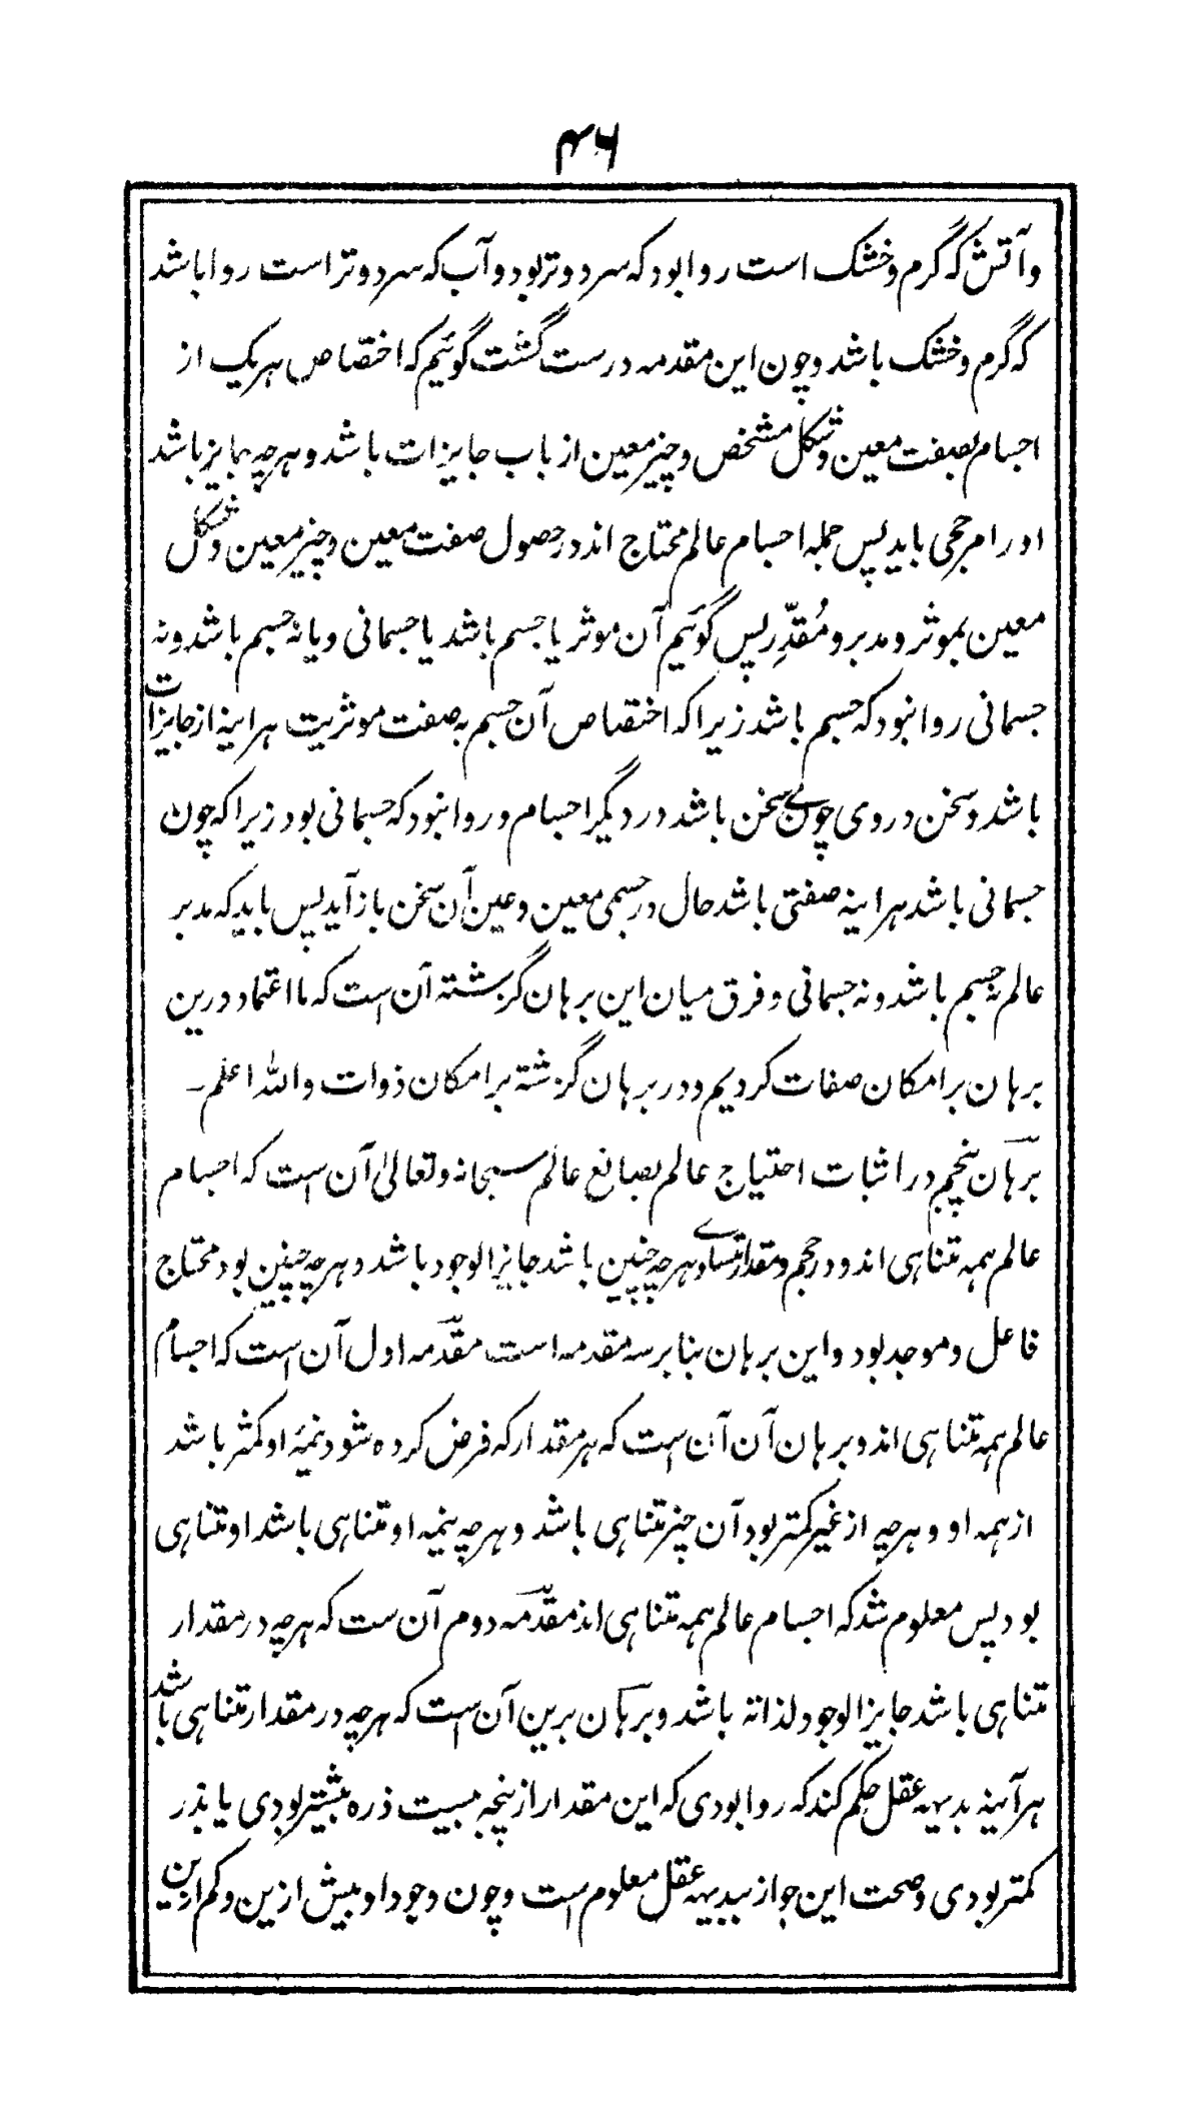 ۴۶
وآتش که گرم وخشک است روا بود که سرد وتر بود وآب که سرد وتر است روا باشد
که گرم وخشک باشد وچون این مقدمه درست گشت گوئیم که اختصاص هر یک از
اجسام بصفت معین وشکل مشخص وحیز معین از باب جایزات باشد وهرچه جایز باشد
او را مرجحی باید پس جمله اجسام عالم محتاج اند در حصول صفت معین وحیز معین وشکل
معین بموثر و مدبر و مُقدِّر پس گوئیم آن موثر یا جسم باشد یا جسمانی ویا نه جسم باشد ونه
جسمانی روا نبود که جسم باشد زیرا که اختصاص آن جسم به صفت موثریت هراینه از جایزات
باشد وسخن در وی چون سخن باشد در دیگر اجسام وروا نبود که جسمانی بود زیرا که چون
جسمانی باشد هراینه صفتی باشد حال در جسمی معین وعین آن سخن باز آید پس باید که مدبر
عالم نه جسم باشد ونه جسمانی وفرق میان این برهان گزشته آن است که ما اعتماد درین
برهان بر امکان صفات کردیم ودر برهان گزشته بر امکان ذوات والله اعلم ـ
برہان پنجم در اثبات احتیاج عالم بصانع عالم سبحانه وتعالیٰ آن است که اجسام
عالم همه متناهی اند ودر حجم ومقدار متساوے وهرچه چنین باشد جایز الوجود باشد وهرچه چنین بود محتاج
فاعل وموجد بود واین برهان بنا بر سه مقدمه است مقدمه اول آن است که اجسام
عالم همه متناهی اند وبرهان آن آن است که هر مقدار که فرض کرده شود نیمۂ او کمتر باشد
از همه او وهرچه از غیر کمتر بود آن چیز متناهی باشد وهرچه نیمه او متناهی باشد او متناهی
بود پس معلوم شد که اجسام عالم همه متناهی اند مقدمه دوم آن ست که هرچه در مقدار
متناهی باشد جایز الوجود لذاته باشد وبرہان برین آن است که هرچه در مقدار متناهی باشد
هرآینه بدیهه عقل حکم کند که روا بودی که این مقدار از پنجه بیست ذره بیشتر بودی یا بذر
کمتر بودی وصحت این جواز ببدیهه عقل معلوم است وچون وجود او بیش ازین وکم ازین